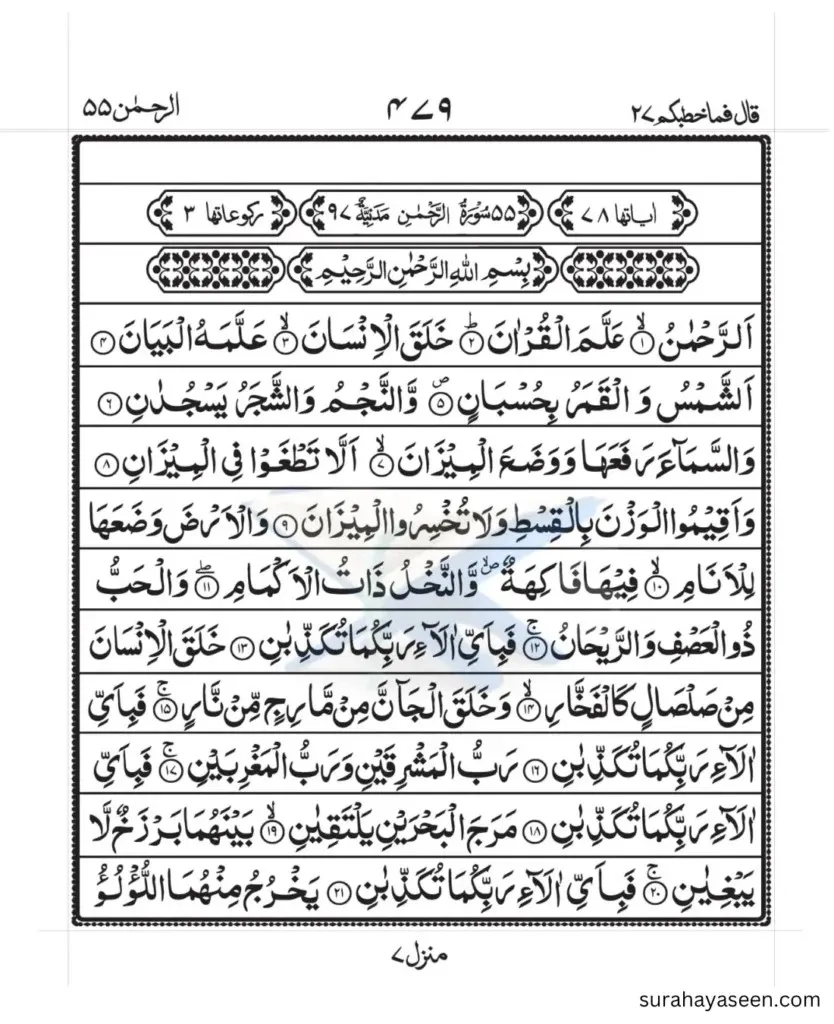 قال فماخطبكم ۲۷ ۴۷۹ الرحمٰن ۵۵
اٰیاتها ۷۸ ۵۵ سُوْرَةُ الرَّحْمٰنِ مَدَنِيَّةٌ ۹۷ رکوعاتها ۳
بِسْمِ اللّٰهِ الرَّحْمٰنِ الرَّحِيْمِ
اَلرَّحْمٰنُ ۙ﴿۱﴾ عَلَّمَ الْقُرْاٰنَ ؕ﴿۲﴾ خَلَقَ الْاِنْسَانَ ۙ﴿۳﴾ عَلَّمَهُ الْبَيَانَ ﴿۴﴾
اَلشَّمْسُ وَ الْقَمَرُ بِحُسْبَانٍ ۪﴿۵﴾ وَّالنَّجْمُ وَالشَّجَرُ يَسْجُدٰنِ ﴿۶﴾
وَالسَّمَآءَ رَفَعَهَا وَوَضَعَ الْمِيْزَانَ ۙ﴿۷﴾ اَلَّا تَطْغَوْا فِى الْمِيْزَانِ ﴿۸﴾
وَاَقِيْمُوا الْوَزْنَ بِالْقِسْطِ وَلَا تُخْسِرُوا الْمِيْزَانَ ﴿۹﴾ وَالْاَرْضَ وَضَعَهَا
لِلْاَنَامِ ۙ﴿۱۰﴾ فِيْهَا فَاكِهَةٌ ۪ۙ وَّالنَّخْلُ ذَاتُ الْاَكْمَامِ ۖ﴿۱۱﴾ وَالْحَبُّ
ذُو الْعَصْفِ وَالرَّيْحَانُ ۚ﴿۱۲﴾ فَبِاَىِّ اٰلَآءِ رَبِّكُمَا تُكَذِّبٰنِ ﴿۱۳﴾ خَلَقَ الْاِنْسَانَ
مِنْ صَلْصَالٍ كَالْفَخَّارِ ۙ﴿۱۴﴾ وَخَلَقَ الْجَآنَّ مِنْ مَّارِجٍ مِّنْ نَّارٍ ۚ﴿۱۵﴾ فَبِاَىِّ
اٰلَآءِ رَبِّكُمَا تُكَذِّبٰنِ ﴿۱۶﴾ رَبُّ الْمَشْرِقَيْنِ وَرَبُّ الْمَغْرِبَيْنِ ۚ﴿۱۷﴾ فَبِاَىِّ
اٰلَآءِ رَبِّكُمَا تُكَذِّبٰنِ ﴿۱۸﴾ مَرَجَ الْبَحْرَيْنِ يَلْتَقِيٰنِ ۙ﴿۱۹﴾ بَيْنَهُمَا بَرْزَخٌ لَّا
يَبْغِيٰنِ ۚ﴿۲۰﴾ فَبِاَىِّ اٰلَآءِ رَبِّكُمَا تُكَذِّبٰنِ ﴿۲۱﴾ يَخْرُجُ مِنْهُمَا اللُّؤْلُؤُ
منزل ۷
surahayaseen.com